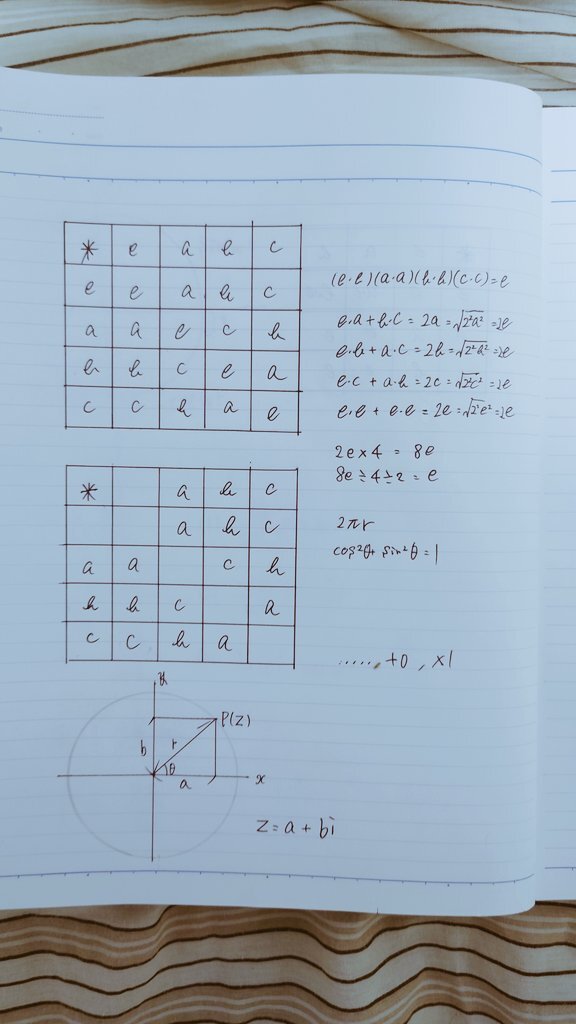 * e a b c
e e a b c
a a e c b
b b c e a
c c b a e
(e·e)(a·a)(b·b)(c·c)=e
e·a+b·c = 2a = √2²a² = 2e
e·b + a·c = 2b = √2²b² = 2e
e·c + a·b = 2c = √2²c² = 2e
e·e + e·e = 2e = √2²e² = 2e
2e×4 = 8e
8e÷4÷2 = e
* a b c
a b c
a a c b
b b c a
c c b a
2πr
cos²θ+ sin²θ = 1
......, +0, ×1
y
P(z)
b r
θ
a x
z = a + bi